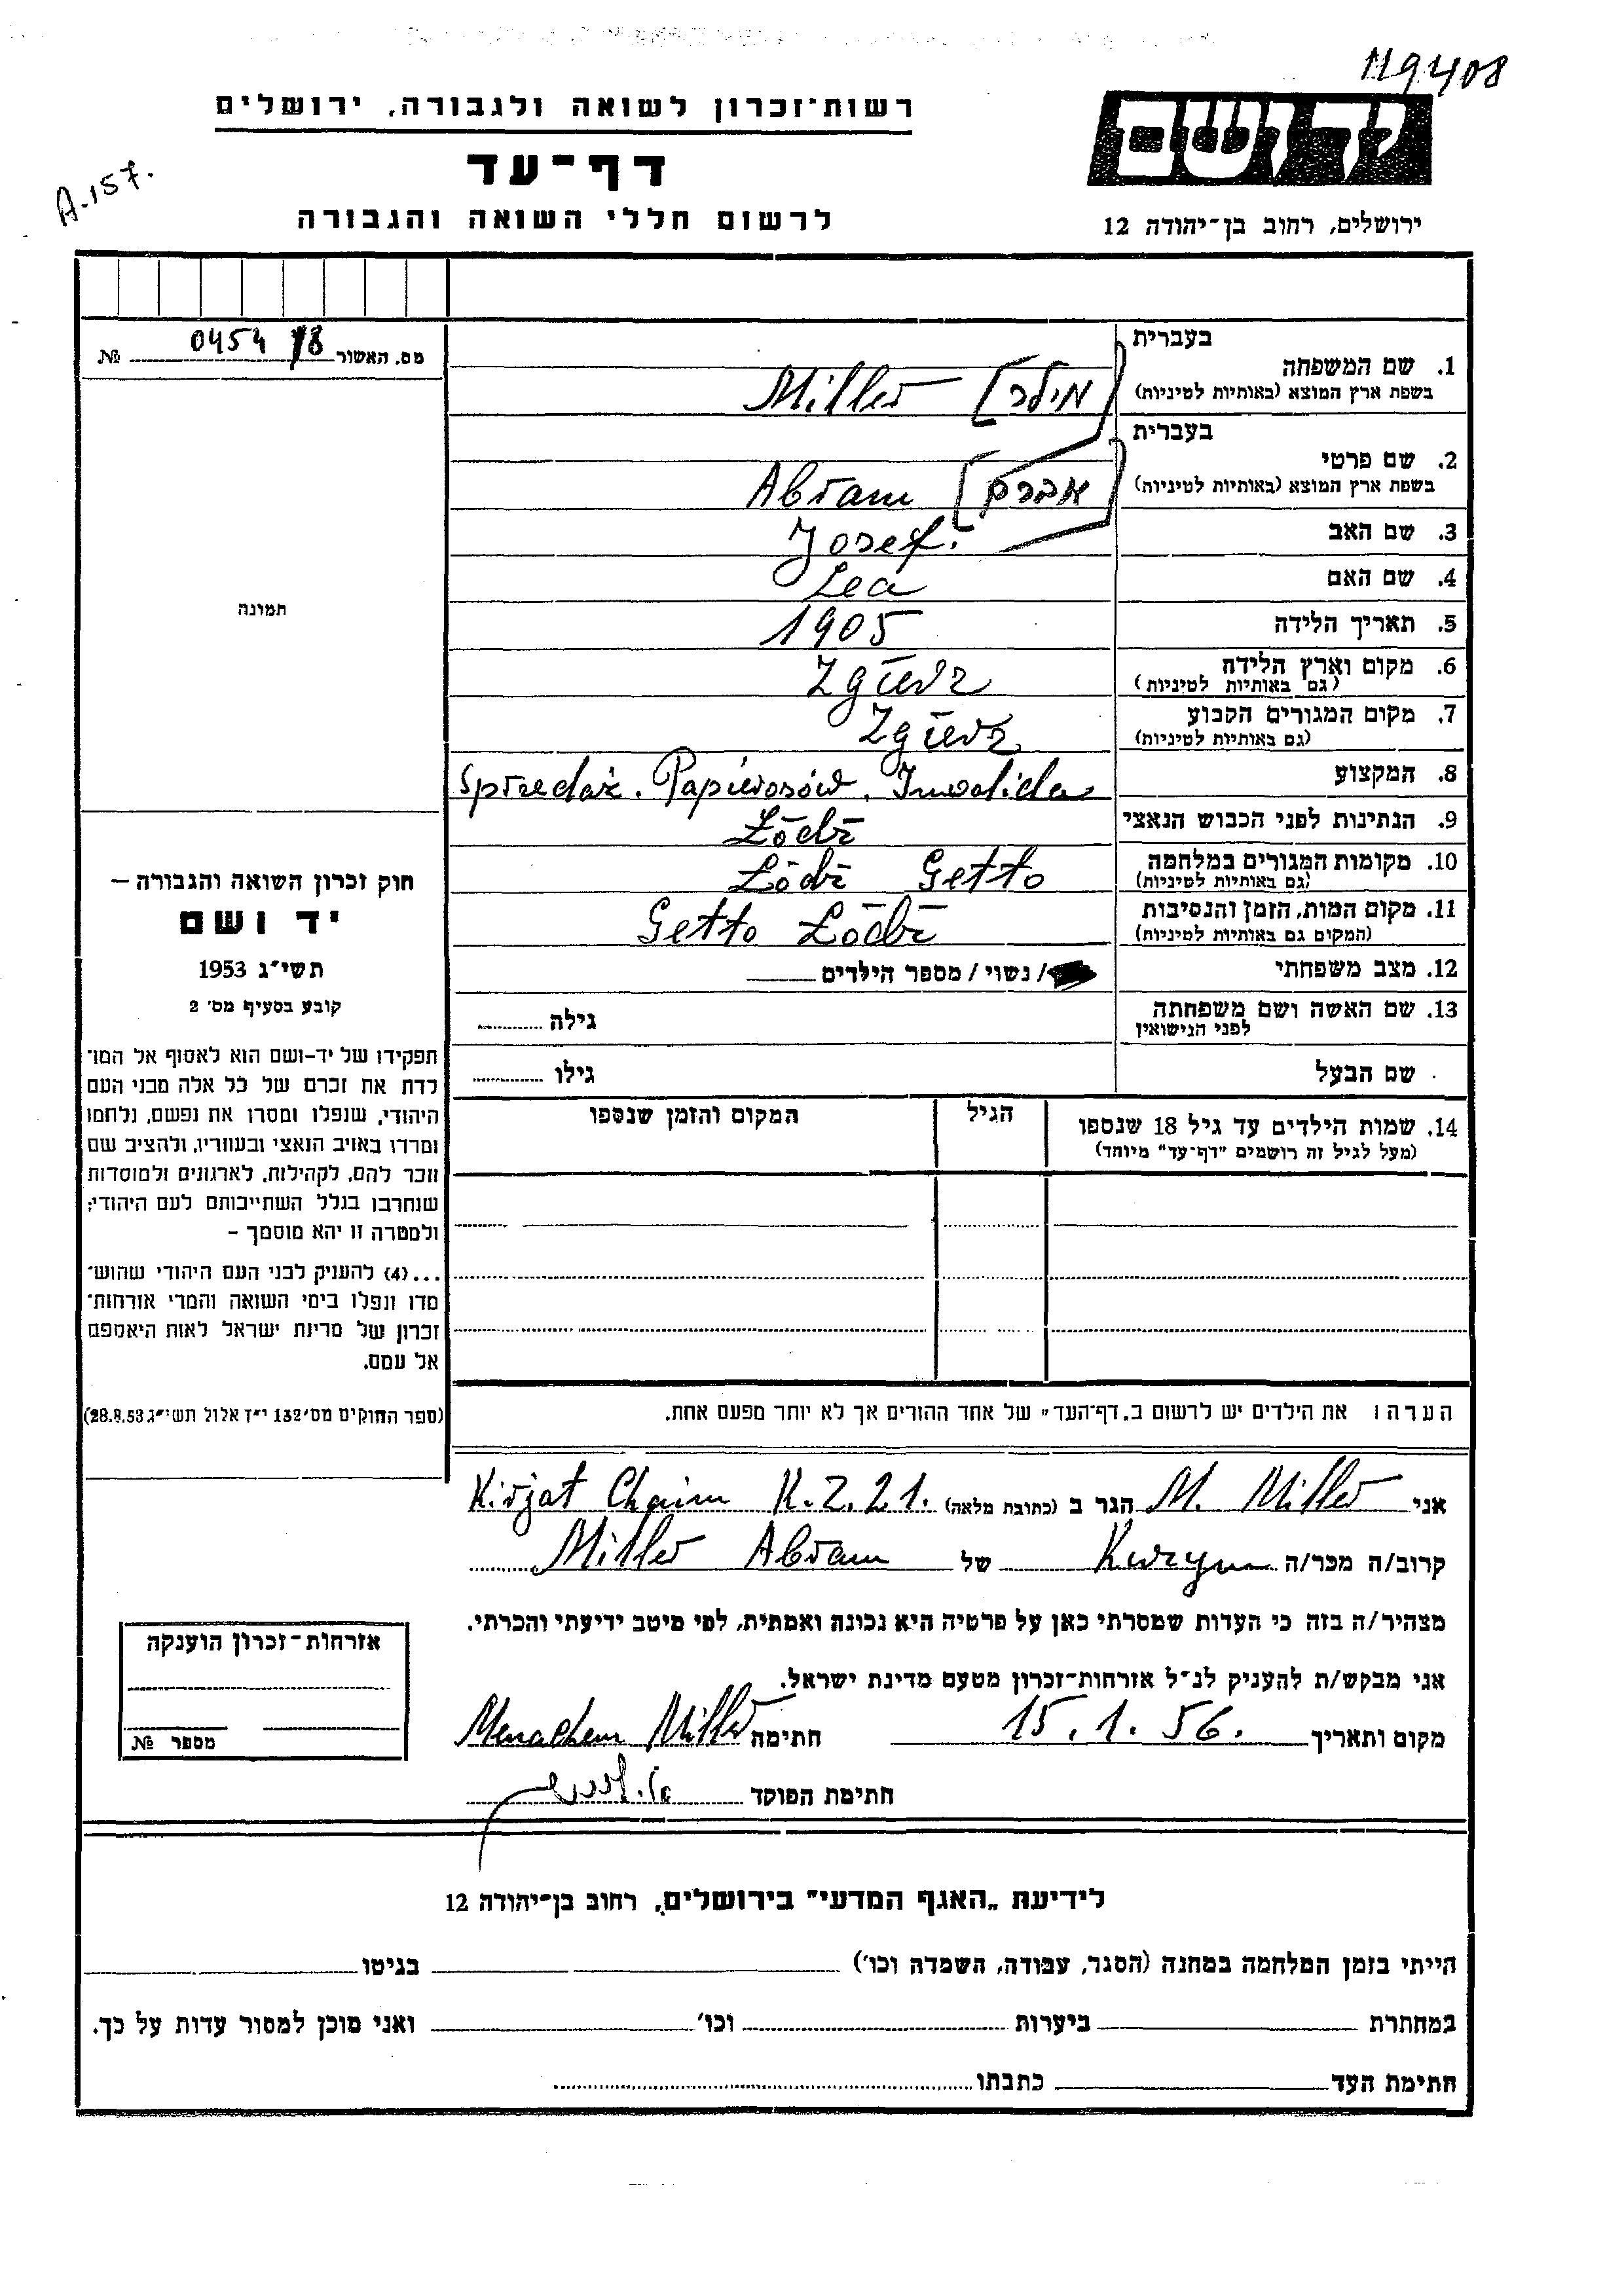 119408
רשות־זכרון לשואה ולגבורה, ירושלים
יד ושם
דף־עד
A.157.
לרשום חללי השואה והגבורה
ירושלים, רחוב בן־יהודה 12
מס. האשור 0454 18 №
בעברית
1. שם המשפחה
בשפת ארץ המוצא (באותיות לטיניות)
[מילר] Miller
בעברית
2. שם פרטי
בשפת ארץ המוצא (באותיות לטיניות)
[אברם] Abram
3. שם האב Josef.
4. שם האם Lea
5. תאריך הלידה 1905
6. מקום וארץ הלידה Zgierz
(גם באותיות לטיניות)
7. מקום המגורים הקבוע Zgierz
(גם באותיות לטיניות)
8. המקצוע Sprzedaż. Papierosów. Inwalida
9. הנתינות לפני הכבוש הנאצי Łódź
10. מקומות המגורים במלחמה Łódź Getto
(גם באותיות לטיניות)
11. מקום המות, הזמן והנסיבות Getto Łódź
(המקום גם באותיות לטיניות)
12. מצב משפחתי / נשוי / מספר הילדים
13. שם האשה ושם משפחתה גילה
לפני הנישואין
שם הבעל גילו
14. שמות הילדים עד גיל 18 שנספו הגיל המקום והזמן שנספו
(מעל לגיל זה רושמים "דף־עד" מיוחד)
הערה: את הילדים יש לרשום ב„דף־העד" של אחד ההורים אך לא יותר מפעם אחת.
תמונה
חוק זכרון השואה והגבורה —
יד ושם
תשי"ג 1953
קובע בסעיף מס' 2
תפקידו של יד-ושם הוא לאסוף אל המו־
לדת את זכרם של כל אלה מבני העם
היהודי, שנפלו ומסרו את נפשם, נלחמו
ומרדו באויב הנאצי ובעוזריו, ולהציב שם
וזכר להם, לקהילות, לארגונים ולמוסדות
שנחרבו בגלל השתייכותם לעם היהודי;
ולמטרה זו יהא מוסמך –
...(4) להעניק לבני העם היהודי שהוש־
מדו ונפלו בימי השואה והמרי אזרחות־
זכרון של מדינת ישראל לאות היאספם
אל עמם.
(ספר החוקים מס' 132 י"ז אלול תשי"ג 28.8.53)
אני M. Miller הגר ב (כתובת מלאה) Kirjat Chaim K.Z.21.
קרוב/ה מכר/ה Kuzyn של Miller Abram
מצהיר/ה בזה כי העדות שמסרתי כאן על פרטיה היא נכונה ואמתית, לפי מיטב ידיעתי והכרתי.
אני מבקש/ת להעניק לנ"ל אזרחות־זכרון מטעם מדינת ישראל.
מקום ותאריך 15.1.56. חתימה Menachem Miller
חתימת הפוקד
אזרחות־זכרון הוענקה
מספר №
לידיעת „האגף המדעי" בירושלים, רחוב בן־יהודה 12
הייתי בזמן המלחמה במחנה (הסגר, עבודה, השמדה וכו') בגיטו
במחתרת ביערות וכו' ואני מוכן למסור עדות על כך.
חתימת העד כתבתו